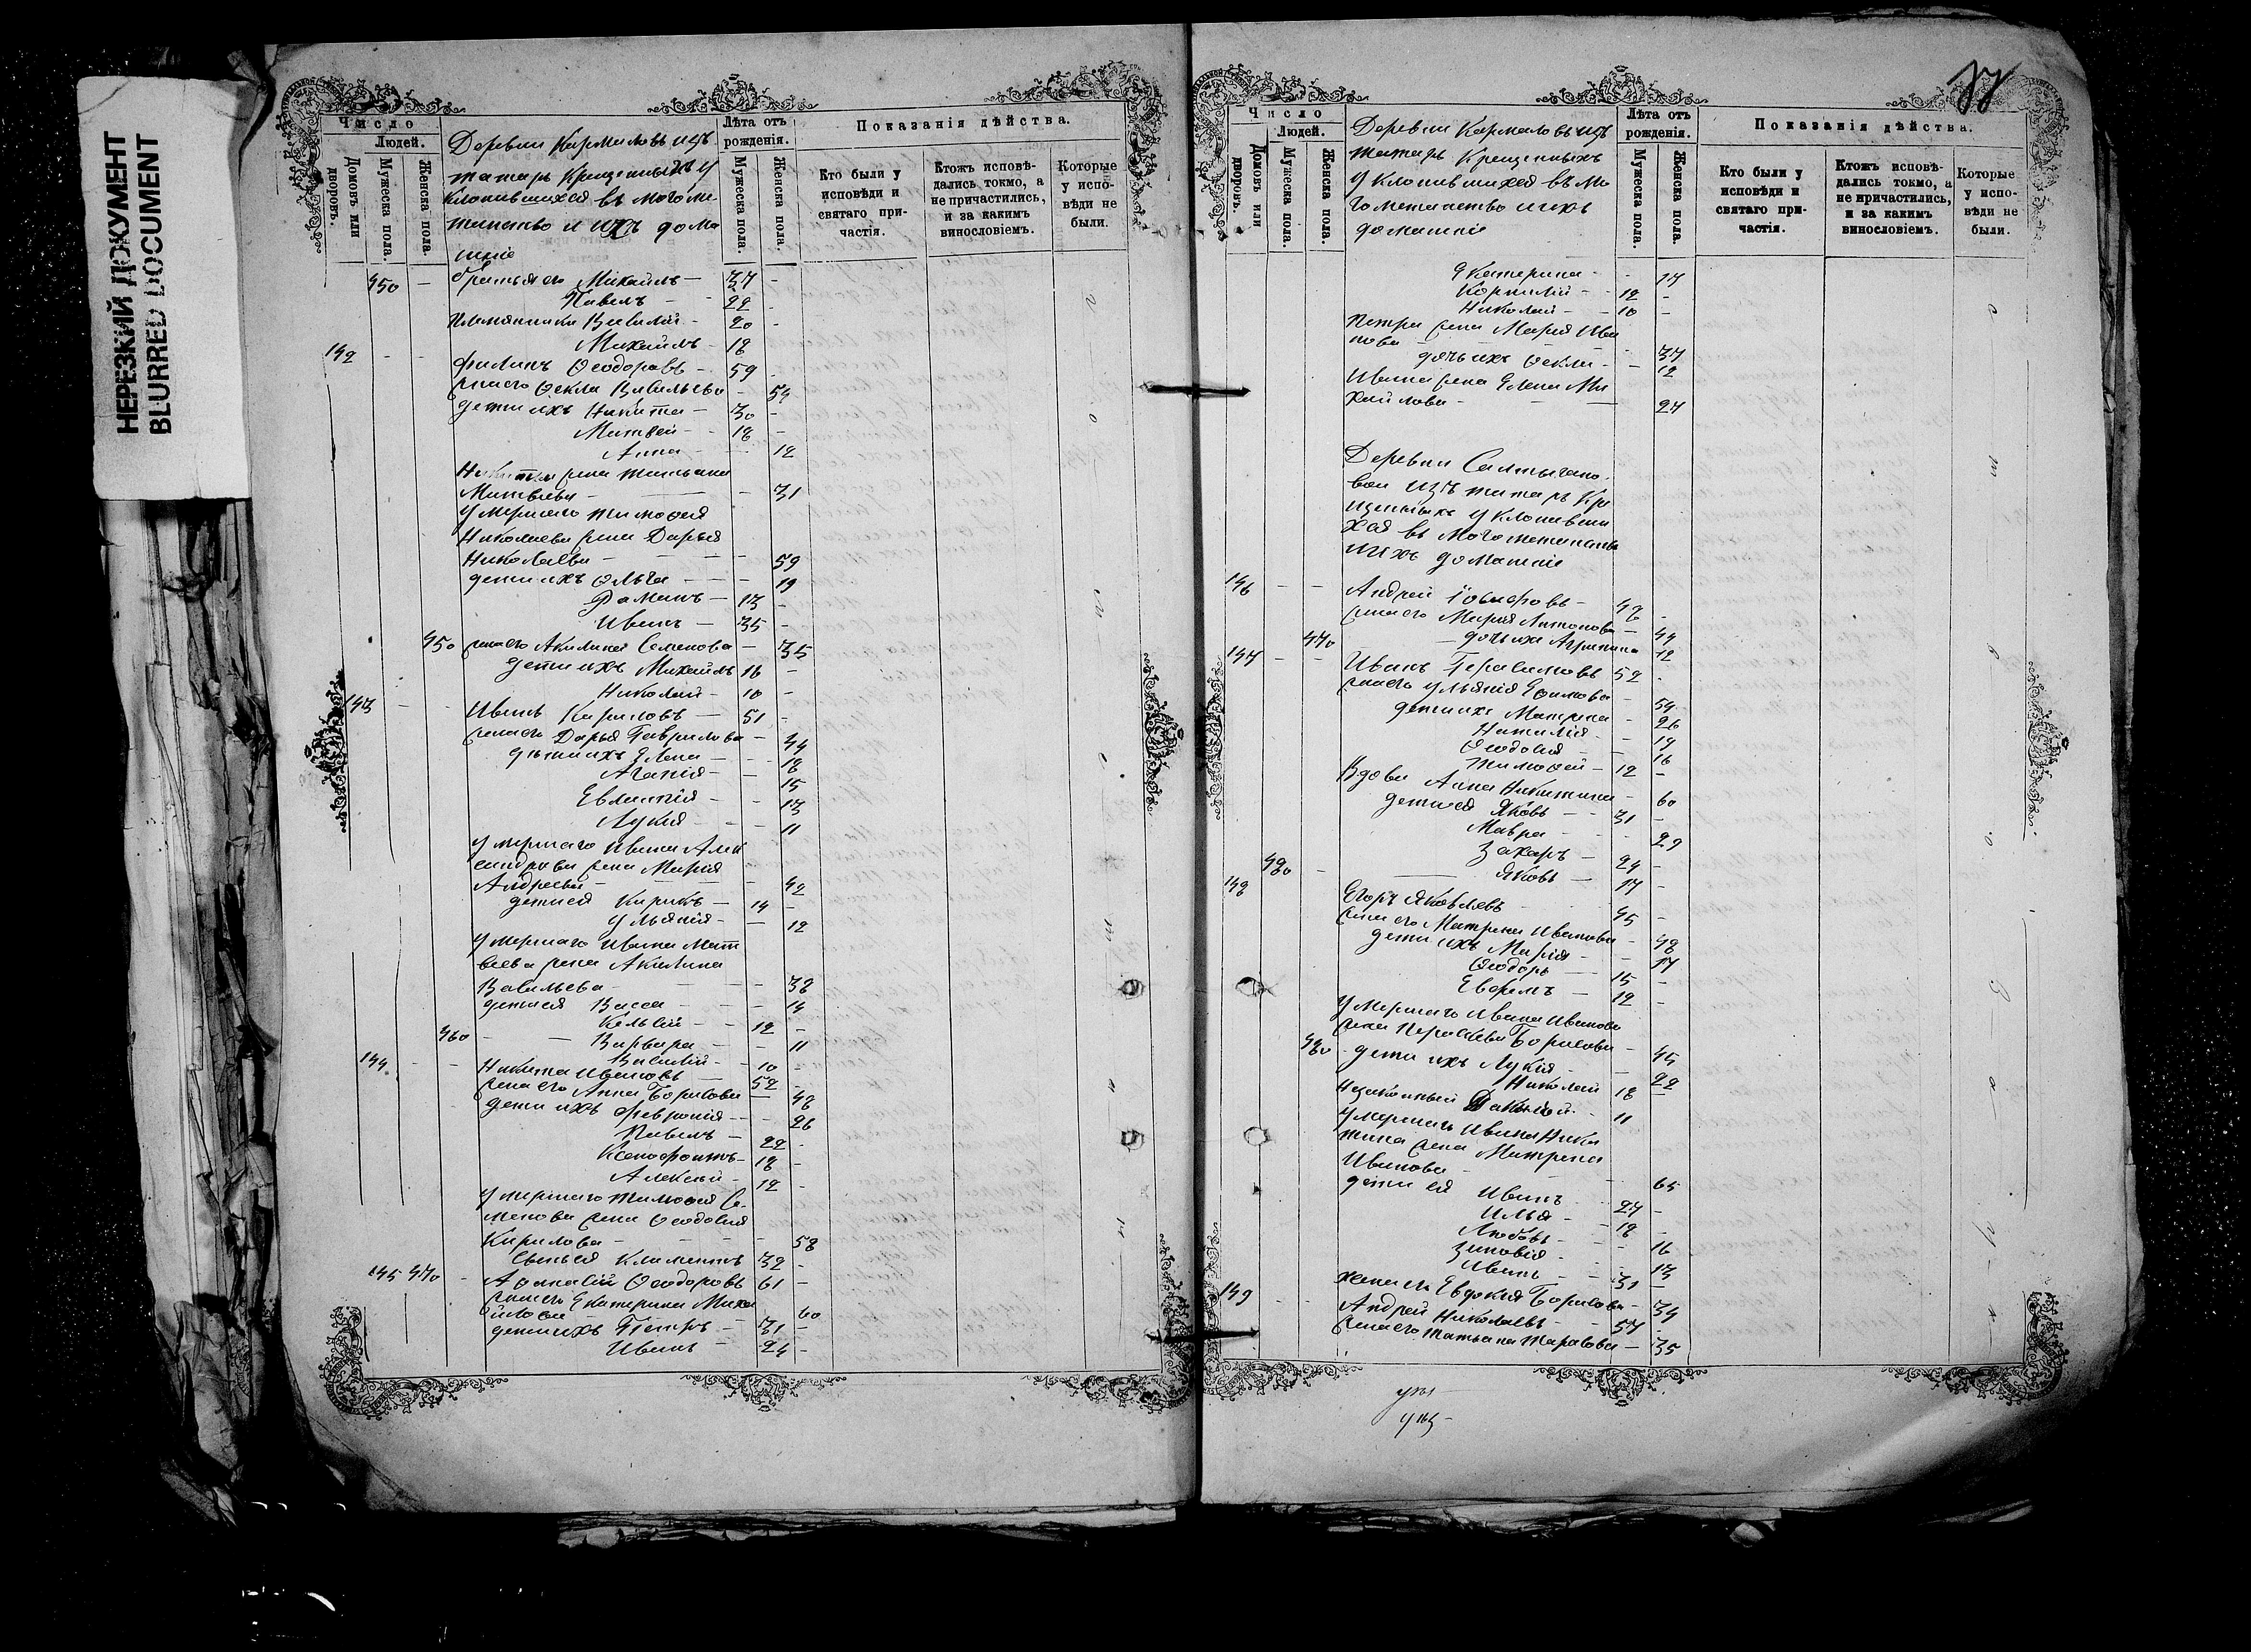 НЕРЕЗКИЙ ДОКУМЕНТ
BLURRED DOCUMENT
Число
Людей.
Домовъ или дворовъ.
Мужеска пола.
Женска пола.
Деревни Кармаловъ изъ
татаръ крещенныхъ у
клонившихся въ могоме
танство и ихъ дома
шніе
Лѣта отъ рожденія.
Мужеска пола.
Женска пола.
Показанія дѣйства.
Кто были у исповѣди и святаго причастія.
Ктожъ исповѣдались токмо, а не причастились, и за какимъ винословіемъ.
Которые у исповѣди не были.
450 братья его Михаилъ 37
Павелъ 22
племянники Василій 20
Михаилъ 18
142 Филипъ Ѳеодоровъ 59
жена его Ѳекла Васильева 54
дети ихъ Никита 30
Матвей 18
Анна 12
Никиты жена Татьяна
Матвѣева 31
умершаго Тимоѳея
Николаева жена Дарья
Николаева 59
дети ихъ Ольга 19
Романъ 13
Иванъ 35
450 жена его Акилина Семенова 35
дети ихъ Михаилъ 16
Николай 10
143 Иванъ Кириловъ 51
жена его Дарья Гаврилова 44
дети ихъ Елена 18
Агапія 15
Евлампія 13
Лукія 11
умершаго Ивана Алек
сандрова жена Марія
Андреева 42
дети ея Кирикъ 14
Ульянія 12
умершаго Ивана Мат
веева жена Акилина
Васильева 38
дети ея Васса 14
12
460 Варвара 11
Василій 10
144 Никита Ивановъ 52
жена его Анна Борисова 48
дети ихъ Февронія 26
Павелъ 22
Ксенофонтъ 18
Алексей 12
умершаго Тимоѳея Се
менова жена Ѳеодосія
Кирилова 58
сынъ ея Климентъ 32
145 470 Аѳанасій Ѳеодоровъ 61
жена его Екатерина Миха
йлова 60
дети ихъ Петръ 31
Иванъ 24
77
Число
Людей.
Домовъ или дворовъ.
Мужеска пола.
Женска пола.
Деревни Кармаловъ изъ
татаръ крещенныхъ
уклонившихся въ мо
гометанство и ихъ
домашніе
Лѣта отъ рожденія.
Мужеска пола.
Женска пола.
Показанія дѣйства.
Кто были у исповѣди и святаго причастія.
Ктожъ исповѣдались токмо, а не причастились, и за какимъ винословіемъ.
Которые у исповѣди не были.
Екатерина 17
Корнилій 12
Николай 10
Петра жена Марія Ива
нова 37
дочь ихъ Ѳекла 12
Ивана жена Елена Ми
хайлова 27
Деревни Салтыгано
вой изъ татаръ кре
щенныхъ уклонивши
хся въ могометанство
и ихъ домашніе
146 Андрей Іосифовъ 48
жена его Марія Антонова 44
470 дочь ихъ Агрипина 12
147 Иванъ Герасимовъ 52
жена его Ульянія Ефимова 54
дети ихъ Матрена 26
Наталія 19
Ѳеодосія 16
Тимоѳей 12
Вдова Анна Никитина 60
дети ея Яковъ 31
Мавра 29
Захаръ 24
480 Яковъ 17
148 Егоръ Яковлевъ 45
жена его Матрена Иванова 48
дети ихъ Марія 17
Ѳеодоръ 15
Ефремъ 12
умершаго Ивана Иванова
жена Параскева Борисова 45
480 дети ихъ Лукія 22
Николай 18
Незаконный 11
умершаго Ивана Ники
тина жена Матрена
Иванова 65
дети ея Иванъ 27
Илья 18
Любовь 16
Зиновія 13
Иванъ 31
жена его Евдокия Борисова 34
149 Андрей Николаевъ 57
жена его Татьяна Тарасова 35